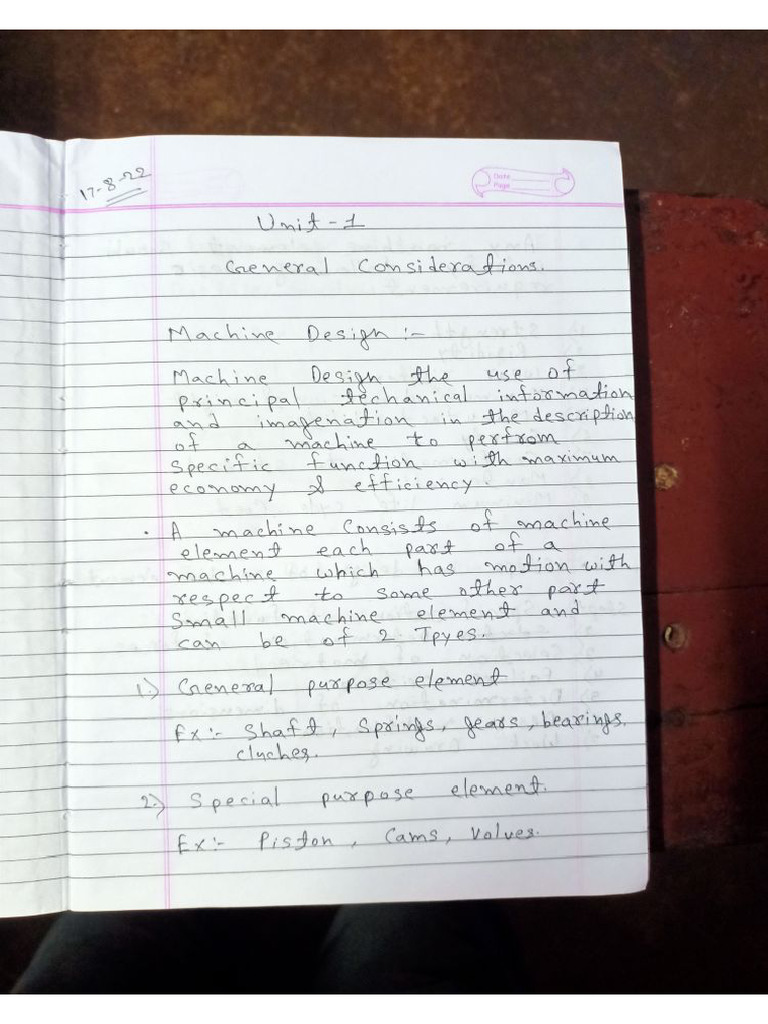 17-8-22
Date
Page
Unit-1
General Considerations.
Machine Design :-
Machine Design the use of
principal techanical information
and imagenation in the description
of a machine to perfrom
specific function with maximum
economy & efficiency
. A machine consists of machine
element each part of a
machine which has motion with
respect to some other part
small machine element and
can be of 2 Tpyes.
1.) General purpose element
Ex:- Shaft, Springs, gears, bearings,
cluches.
2.) Special purpose element.
Ex:- Piston, Cams, Valves.